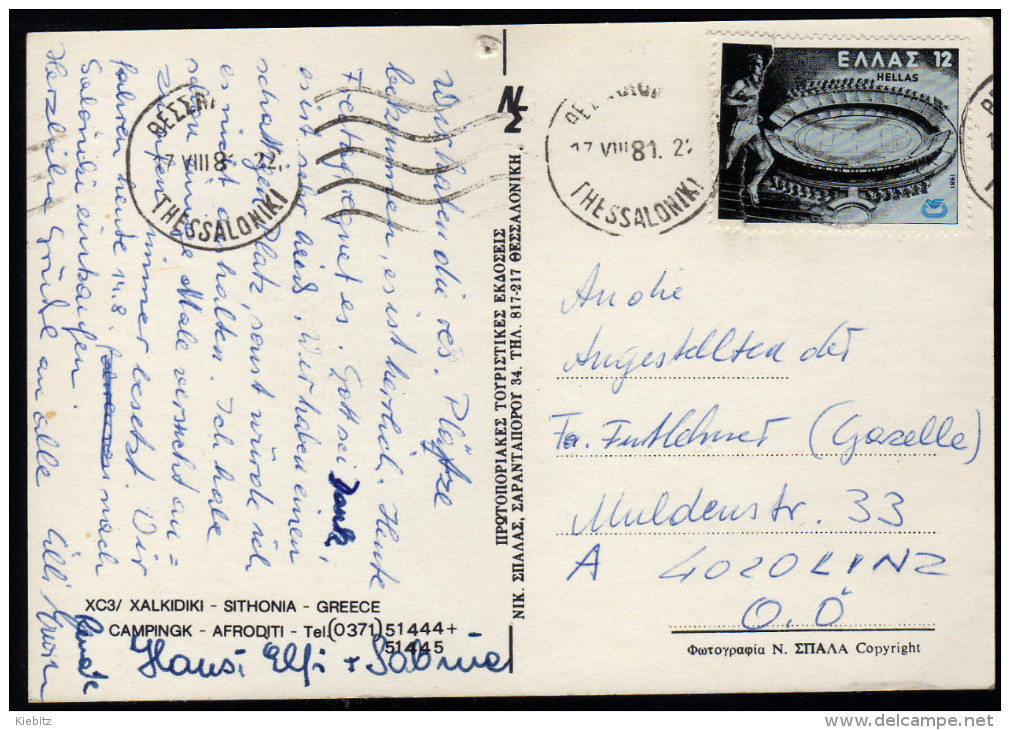 Wir haben die res. Plätze
bekommen, es ist herrlich. Heute
Freitag regnet es. Gott sei Dank,
es ist sehr heiß. Wir haben einen
schattigen Platz, sonst würde ich
es nicht aushalten. Ich habe
schon einige Male versucht an=
zurufen, immer besetzt. Wir
fahren heute 14.8. nach
Saloniki einkaufen.
Herzliche Grüße an alle Cilli
Renate
Hansi Elfi + Sabine
XC3/ XALKIDIKI - SITHONIA - GREECE
CAMPINGK - AFRODITI - Tel.(0371) 51444+
51445
ΘΕΣΣΑ
17 VIII 8 22
THESSALONIKI
ΠΡΩΤΟΠΟΡΙΑΚΕΣ ΤΟΥΡΙΣΤΙΚΕΣ ΕΚΔΟΣΕΙΣ
ΝΙΚ. ΣΠΑΛΑΣ, ΣΑΡΑΝΤΑΠΟΡΟΥ 34. ΤΗΛ. 817-217 ΘΕΣΣΑΛΟΝΙΚΗ.
17 VIII 81. 22
THESSALONIKI
ΕΛΛΑΣ 12
HELLAS
1981
An die
Angestellten der
Fa. Futlehner (Gazelle)
Muldenstr. 33
A 4020 LINZ
O.Ö
Φωτογραφία Ν. ΣΠΑΛΑ Copyright
Kiebitz
delcampe.net